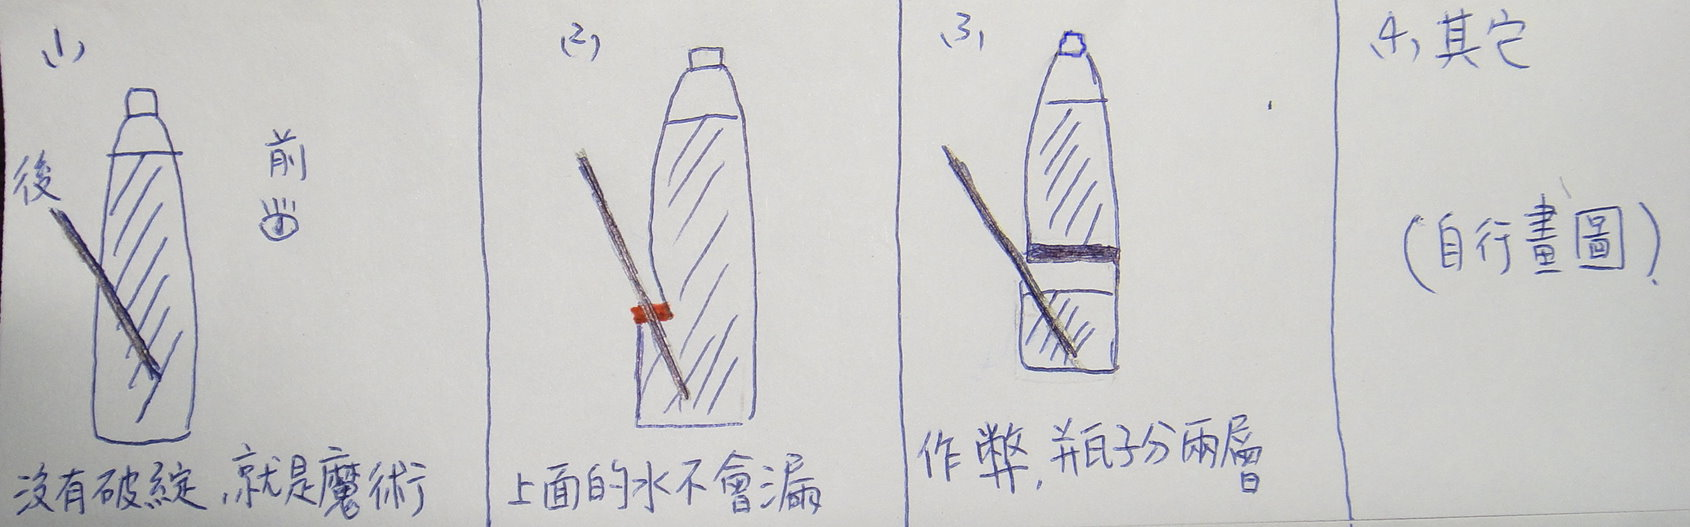 (1)
後
前
沒有破綻,就是魔術
(2)
上面的水不會漏
(3)
作弊,瓶子分兩層
(4)其它
(自行畫圖)